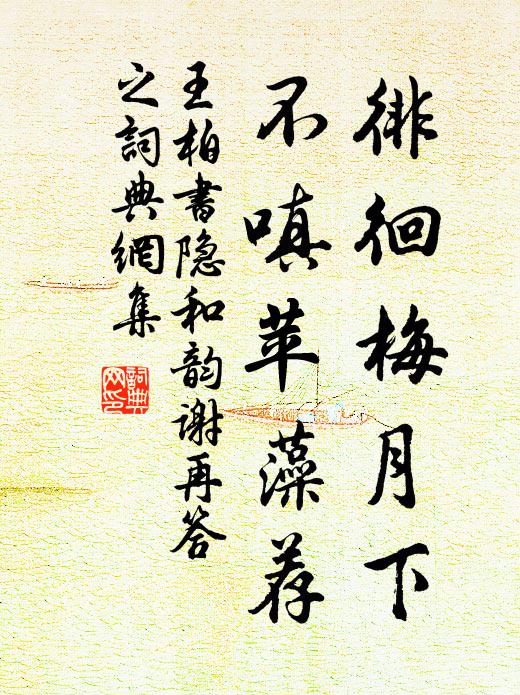 徘徊梅月下
不嗔苹藻荐
王柏書隐和韵谢再答
之詞典網集
詞典
网印